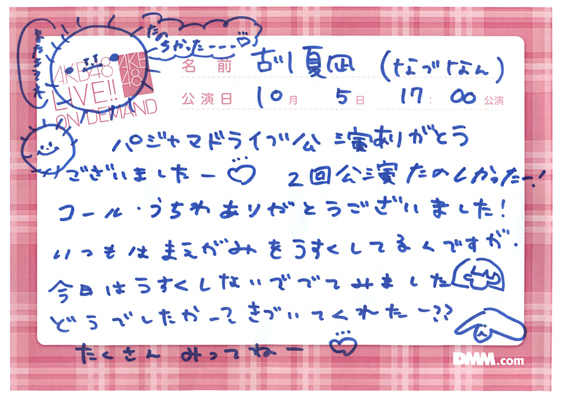 たのしかったーーー♡
AKB48 LIVE!! ON DEMAND
AKB48
名前 古川夏凪 (なづなん)
公演日 10月 5日 17:00公演
パジャマドライブ公演ありがとう
ございましたー♡ 2回公演たのしかったー!
コール・うちわありがとうございました!
いつもはまえがみをうすくしてるんですが、
今日はうすくしないででてみました
どうでしたかー?きづいてくれたー??
たくさんみってねー♡
DMM.com